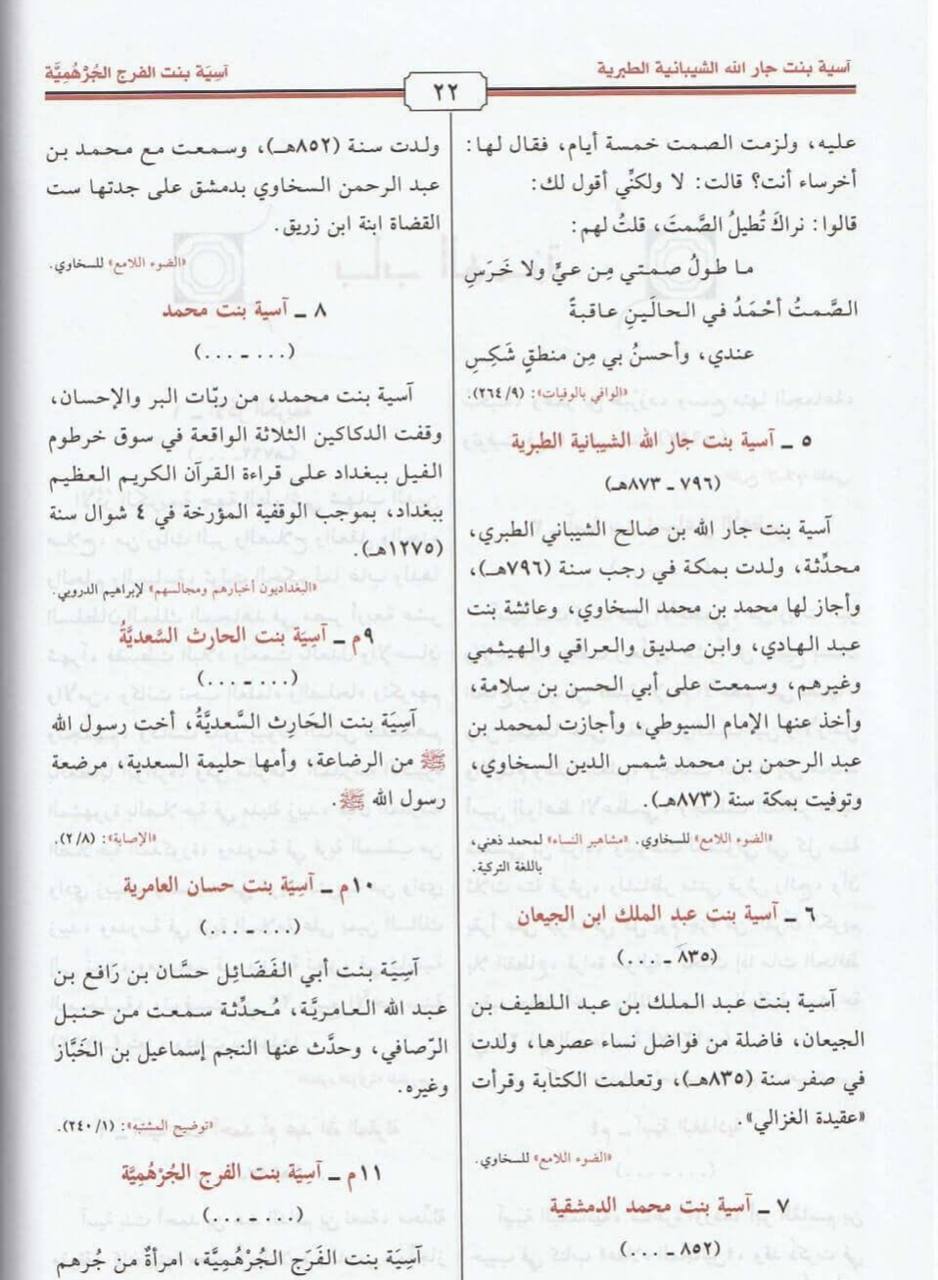 آسية بنت جار الله الشيبانية الطبرية
٢٢
آسِيَة بنت الفرج الجُرْهُمِيَّة
عليه، ولزمت الصمت خمسة أيام، فقال لها:
أخرساء أنت؟ قالت: لا ولكنِّي أقول لك:
قالوا: نراكَ تُطيلُ الصَّمتَ، قلتُ لهم:
ما طولُ صمتي مِن عيٍّ ولا خَرَسِ
الصَّمتُ أحْمَدُ في الحالَينِ عاقبةً
عندي، وأحسنُ بي مِن منطقٍ شَكِسِ
«الوافي بالوفيات»: (٢٦٤/٩).
٥ ـ آسية بنت جار الله الشيبانية الطبرية
(٧٩٦ ـ ٨٧٣هـ)
آسية بنت جار الله بن صالح الشيباني الطبري،
محدِّثة، ولدت بمكة في رجب سنة (٧٩٦هـ)،
وأجاز لها محمد بن محمد السخاوي، وعائشة بنت
عبد الهادي، وابن صديق والعراقي والهيثمي
وغيرهم، وسمعت على أبي الحسن بن سلامة،
وأخذ عنها الإمام السيوطي، وأجازت لمحمد بن
عبد الرحمن بن محمد شمس الدين السخاوي،
وتوفيت بمكة سنة (٨٧٣هـ).
«الضوء اللامع» للسخاوي. «مشاهير النساء» لمحمد ذهني،
باللغة التركية.
٦ ـ آسية بنت عبد الملك ابن الجيعان
(٨٣٥ ـ . . .)
آسية بنت عبد الملك بن عبد اللطيف بن
الجيعان، فاضلة من فواضل نساء عصرها، ولدت
في صفر سنة (٨٣٥هـ)، وتعلمت الكتابة وقرأت
«عقيدة الغزالي».
«الضوء اللامع» للسخاوي.
٧ ـ آسية بنت محمد الدمشقية
(٨٥٢ ـ . . .)
ولدت سنة (٨٥٢هـ)، وسمعت مع محمد بن
عبد الرحمن السخاوي بدمشق على جدتها ست
القضاة ابنة ابن زريق.
«الضوء اللامع» للسخاوي.
٨ ـ آسية بنت محمد
(. . . ـ . . .)
آسية بنت محمد، من ربّات البر والإحسان،
وقفت الدكاكين الثلاثة الواقعة في سوق خرطوم
الفيل ببغداد على قراءة القرآن الكريم العظيم
ببغداد، بموجب الوقفية المؤرخة في ٤ شوال سنة
(١٢٧٥هـ).
«البغداديون أخبارهم ومجالسهم» لإبراهيم الدروبي.
٩م ـ آسِيَة بنت الحارث السَّعديَّةُ
(. . . ـ . . .)
آسِيَة بنت الحَارث السَّعديَّةُ، أخت رسول الله
ﷺ من الرضاعة، وأمها حليمة السعدية، مرضعة
رسول الله ﷺ.
«الإصابة»: (٢/٨).
١٠م ـ آسِيَة بنت حسان العامرية
(. . . ـ . . .)
آسِيَة بنت أبي الفَضَائِل حسَّان بن رَافع بن
عبد الله العامريَّة، مُحدِّثة سمعت من حنبل
الرّصافي، وحدَّث عنها النجم إسماعيل بن الخَبَّاز
وغيره.
«توضيح المشتبه»: (٢٤٠/١).
١١م ـ آسِيَة بنت الفرج الجُرْهُمِيَّة
(. . . ـ . . .)
آسِيَة بنت الفَرَج الجُرْهُمِيَّة، امرأةٌ من جُرهم